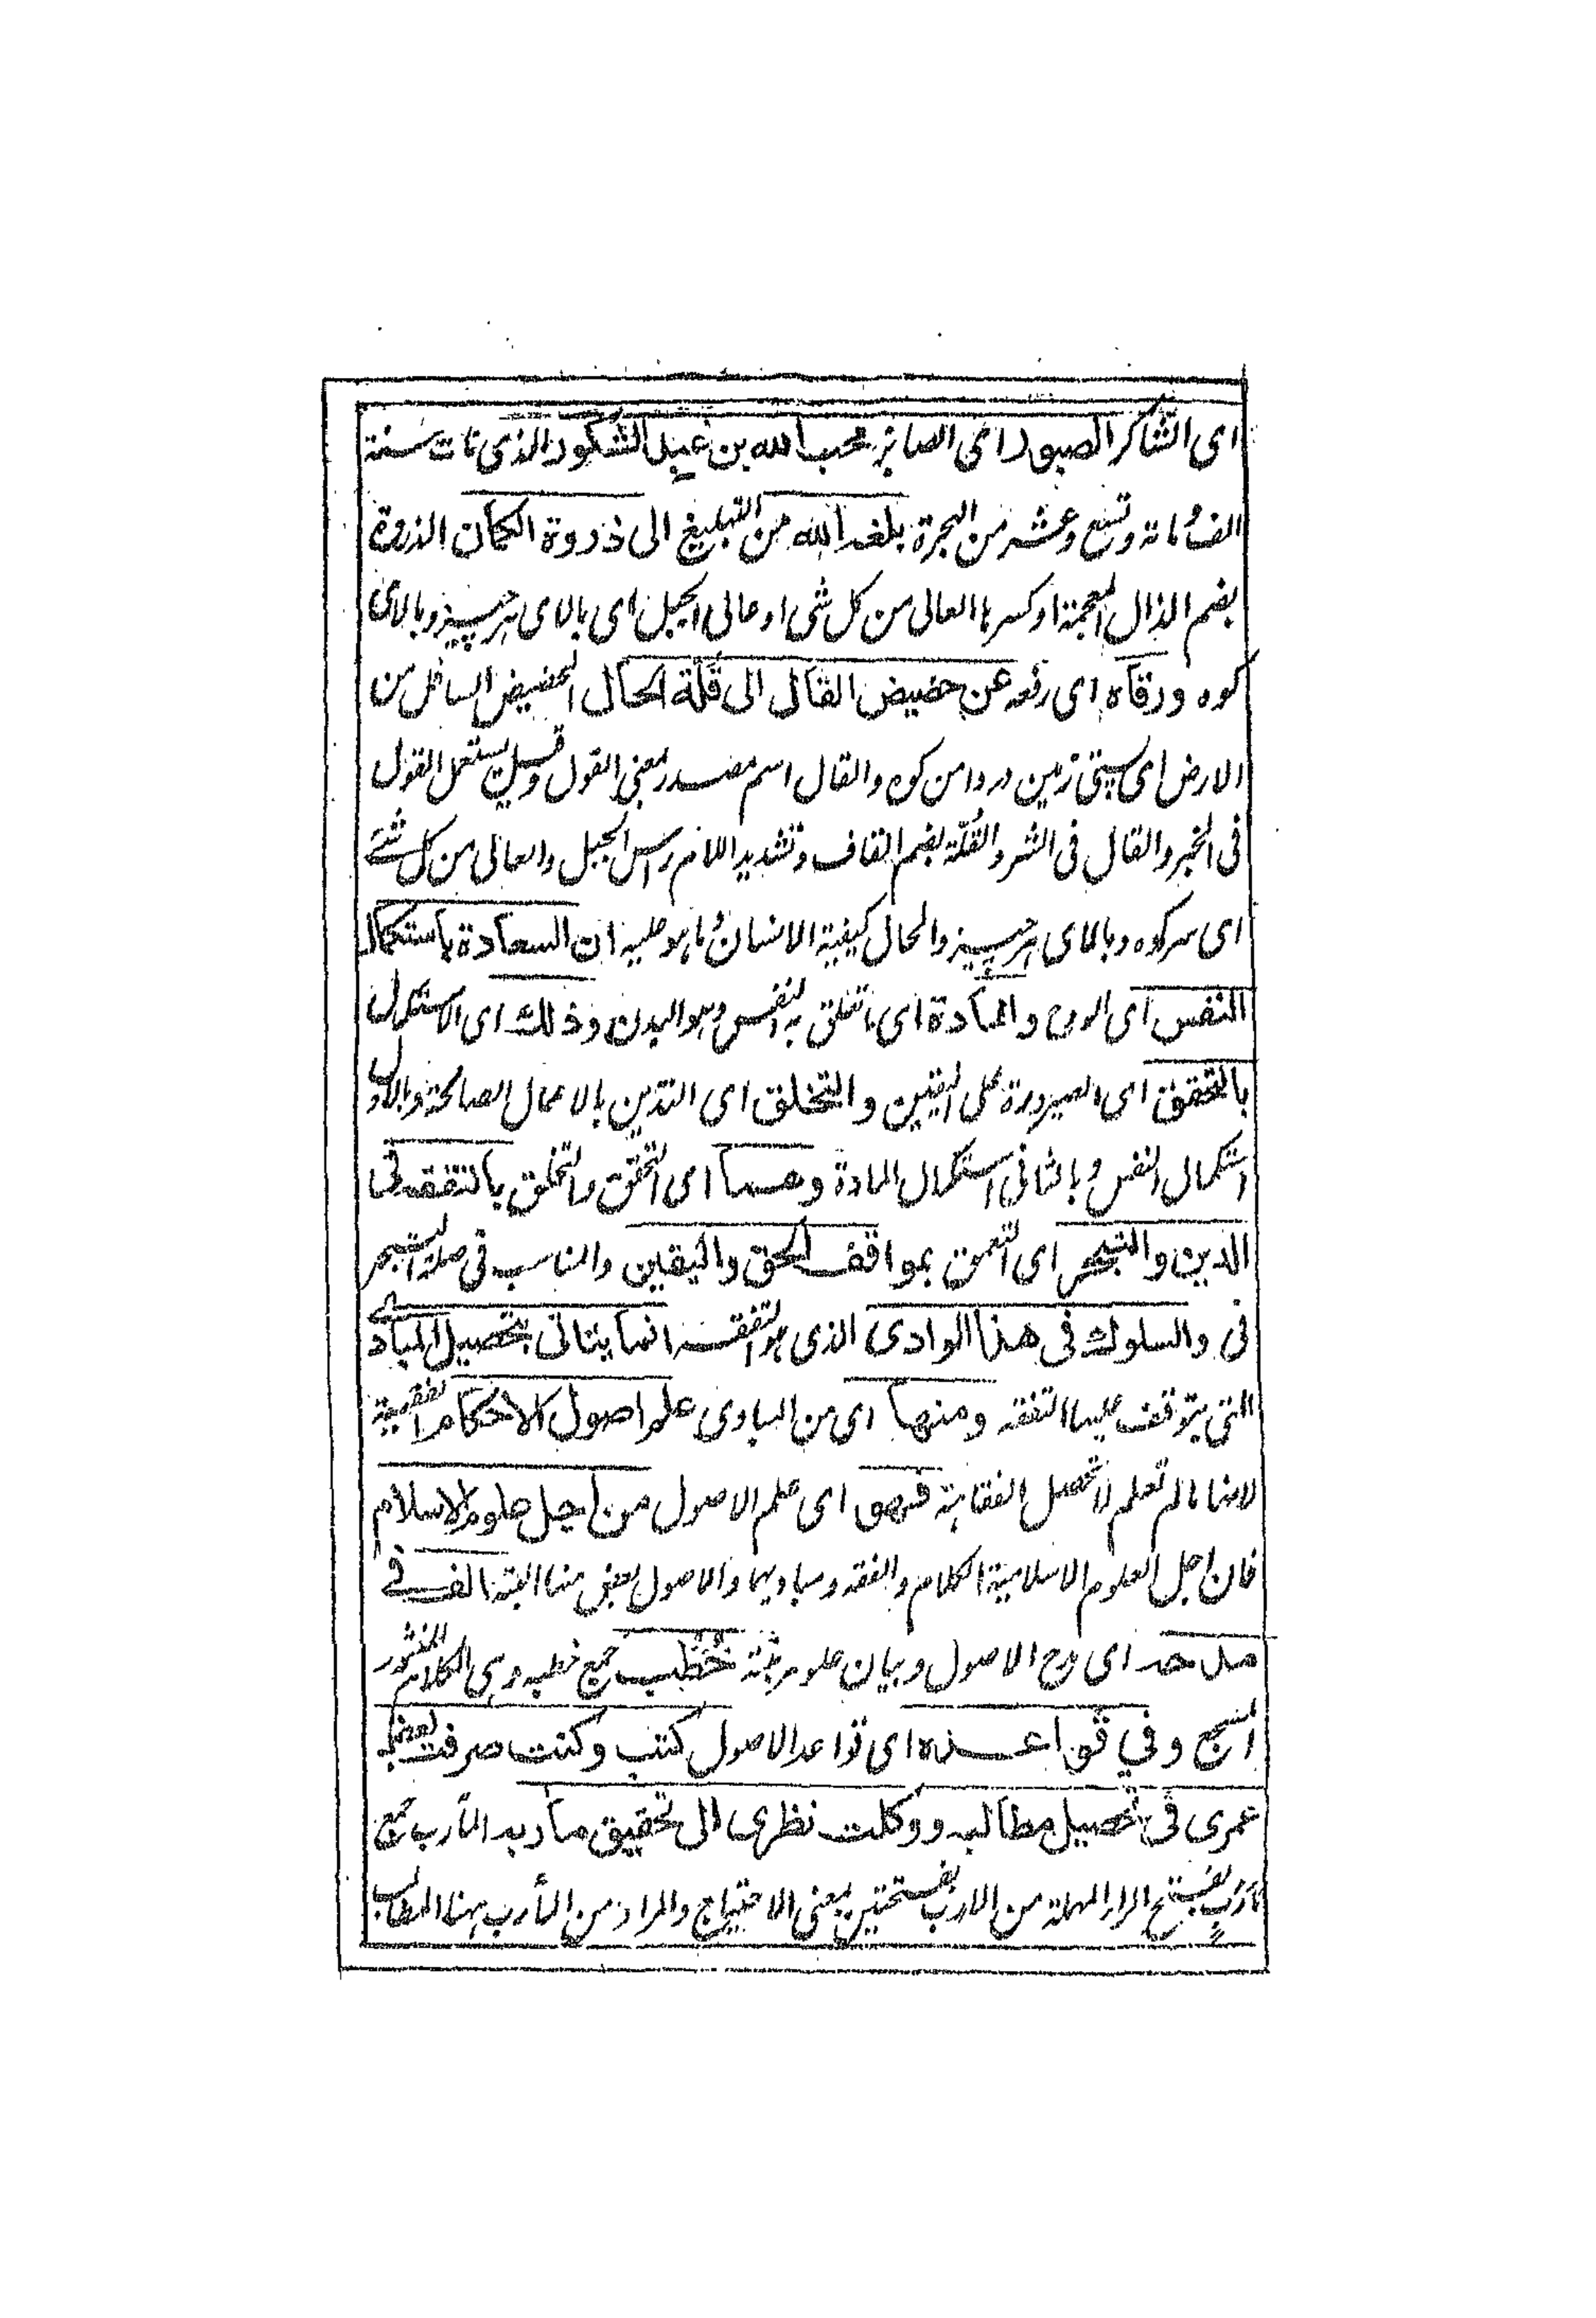 اى الشاكر الصبور اى الصابر محب الله بن عبد الشكور الذى مات سنة
الف و مائة وتسع وعشر من الهجرة بلغه الله من التبليغ الى ذروة الكمال الذروة
بضم الذال المعجمة او كسرها العالى من كل شئ او عالى الجبل اى بالاى هر چيز و بالاى
كوه ورقاه اى رفعه عن حضيض القال الى قلة الحال الحضيض السافل من
الارض اى پستى زمين در دامن كوه والقال اسم مصدر بمعنى القول وقيل يستعمل القول
فى الخير والقال فى الشر والقُلّة بضم القاف وتشديد اللام راس الجبل والعالى من كل شئ
اى سر كوه و بالاى هر چيز والحال كيفية الانسان و ما هو عليه ان السعادة باستكمال
النفس اى الروح والمادة اى ما تتعلق به النفس وهو البدن وذلك اى الاستكمال
بالتحقق اى الصيرورة على اليقين والتخلق اى التزين بالاعمال الصالحة و بالاول
استكمال النفس و بالثانى استكمال المادة وهما اى التحقق والتخلق بالتفقه فى
الدين والتبحر اى التعمق بمواقف الحق واليقين والمناسب فى صلة التبحر
فى والسلوك فى هذا الوادى الذى هو التفقه انما يتاتى بتحصيل المبادى
التى يتوقف عليها التفقه ومنها اى من المبادى علم اصول الاحكام الفقهية
لانها ما لم تعلم لا تحصل الفقاهة فهو اى علم الاصول من اجل علوم الاسلام
فان اجل العلوم الاسلامية الكلام والفقه ومباديهما والاصول بعض منها البتة الف فى
مدحه اى مدح الاصول وبيان علو مرتبته خطب جمع خطبه وهى الكلام المنثور
المسجع وفي قواعده اى قواعد الاصول كتب وكنت صرفت بعض
عمرى فى تحصيل مطالبه ووكلت نظرى الى تحقيق ماربه المآرب جمع
مأرب بفتح الراء المهملة من الارب بفتحتين بمعنى الاحتياج والمراد من المآرب ههنا المطالب